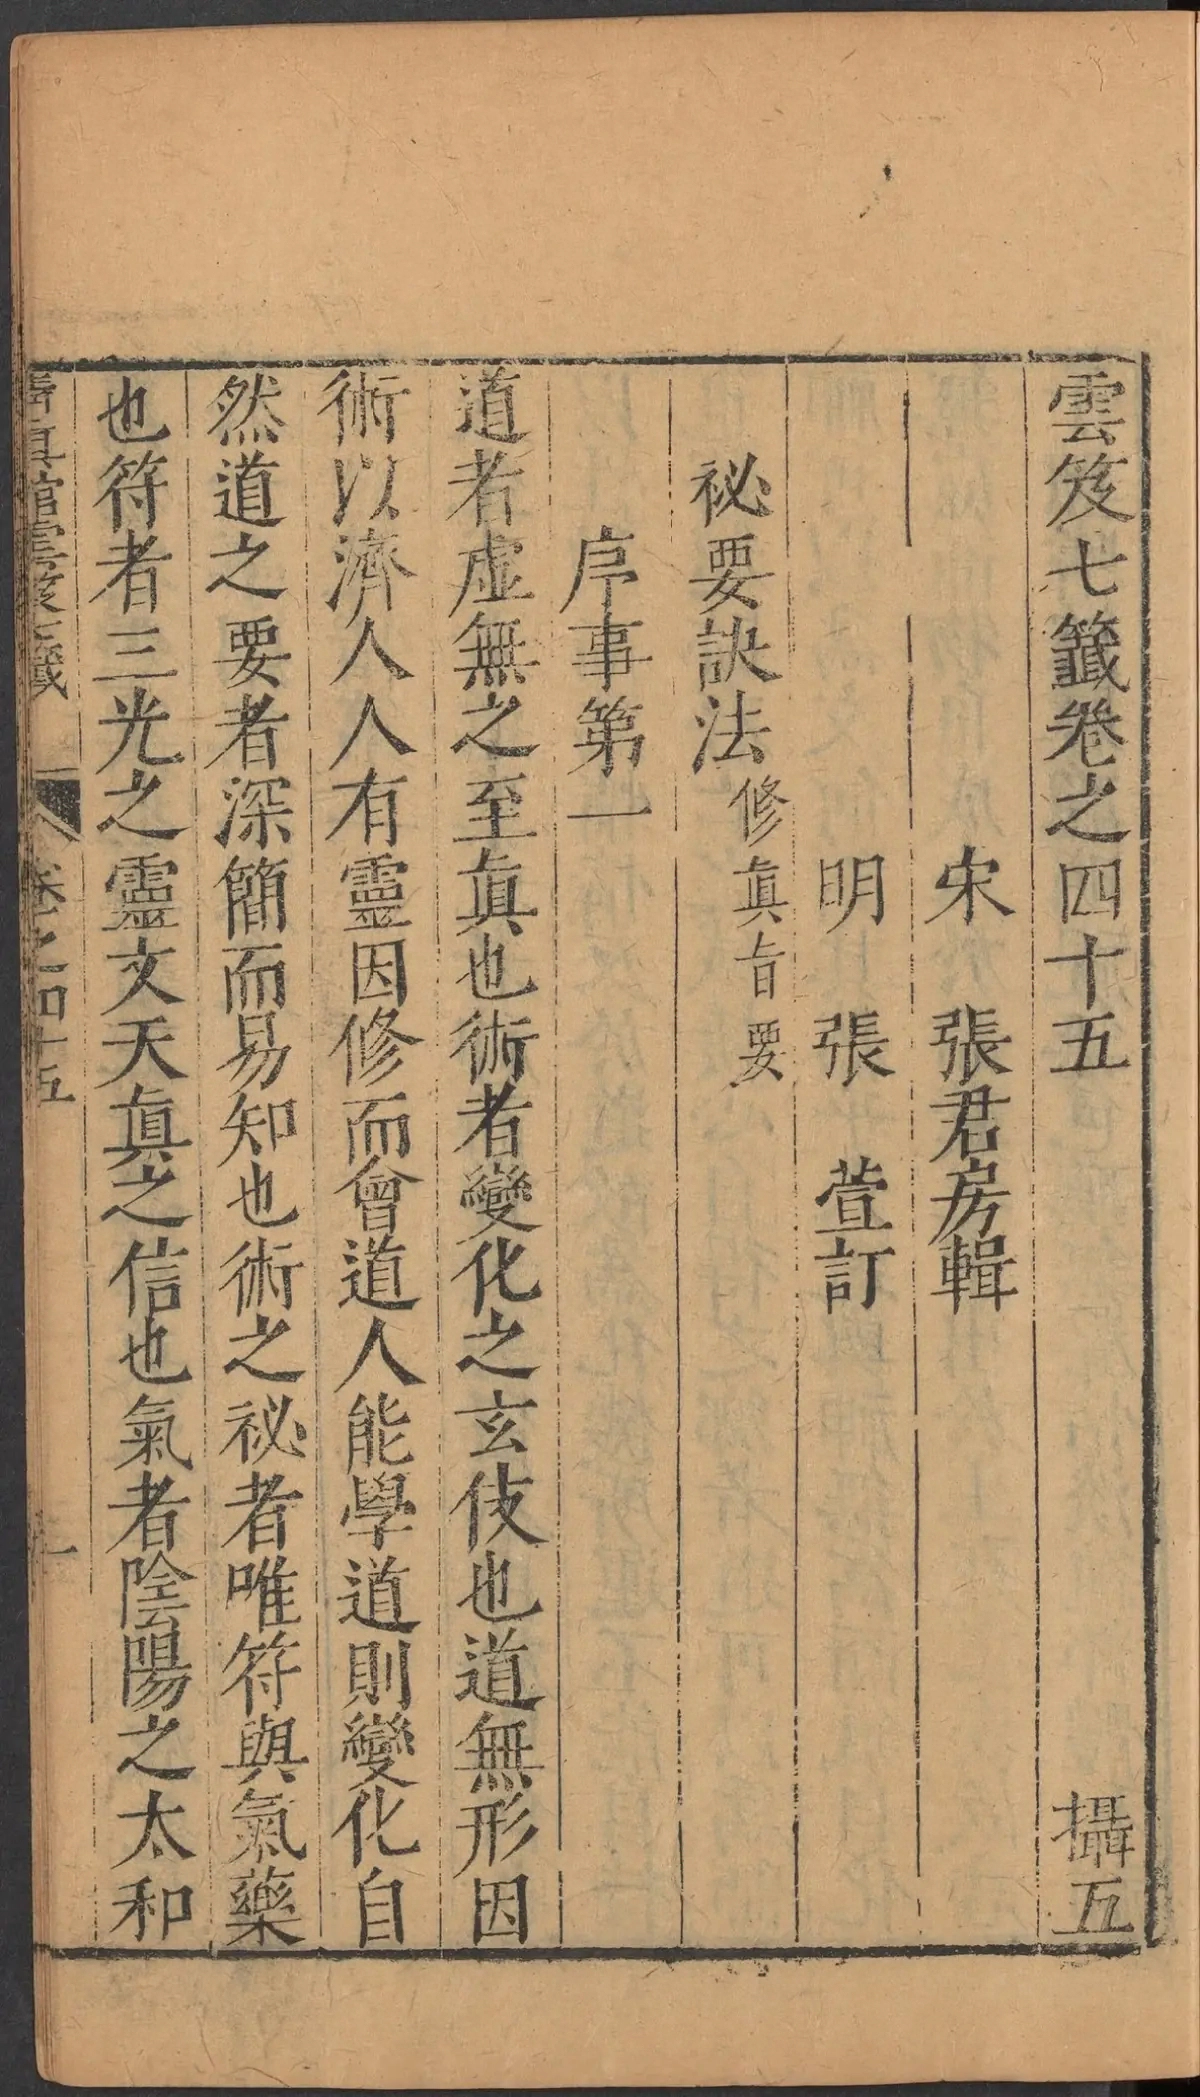 雲笈七籤卷之四十五 攝五
宋 張君房輯
明 張 萱訂
祕要訣法修眞旨要
序事第一
道者虛無之至眞也術者變化之玄伎也道無形因
術以濟人人有靈因修而會道人能學道則變化自
然道之要者深簡而易知也術之祕者唯符與氣藥
也符者三光之靈文天眞之信也氣者陰陽之太和
清真館雲笈七籤 卷之四十五 一